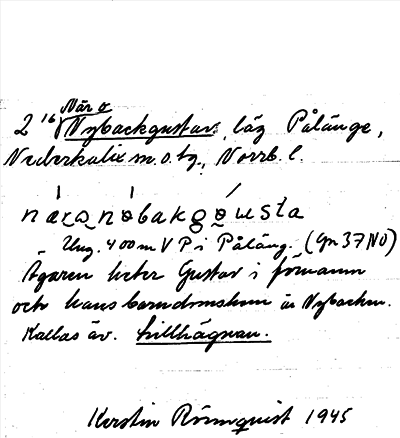 När o
2 16/ Nybackgustav, läg Pålänge,
Nederkalix m. o. tg., Norrb. l.
Ung. 400 m V P i Påläng. (Gm 37 NO)
Ägaren heter Gustav i förnamn
och hans barndomshem är Nybacken.
Kallas äv. Lillhägnan.
Kerstin Rönnquist 1945